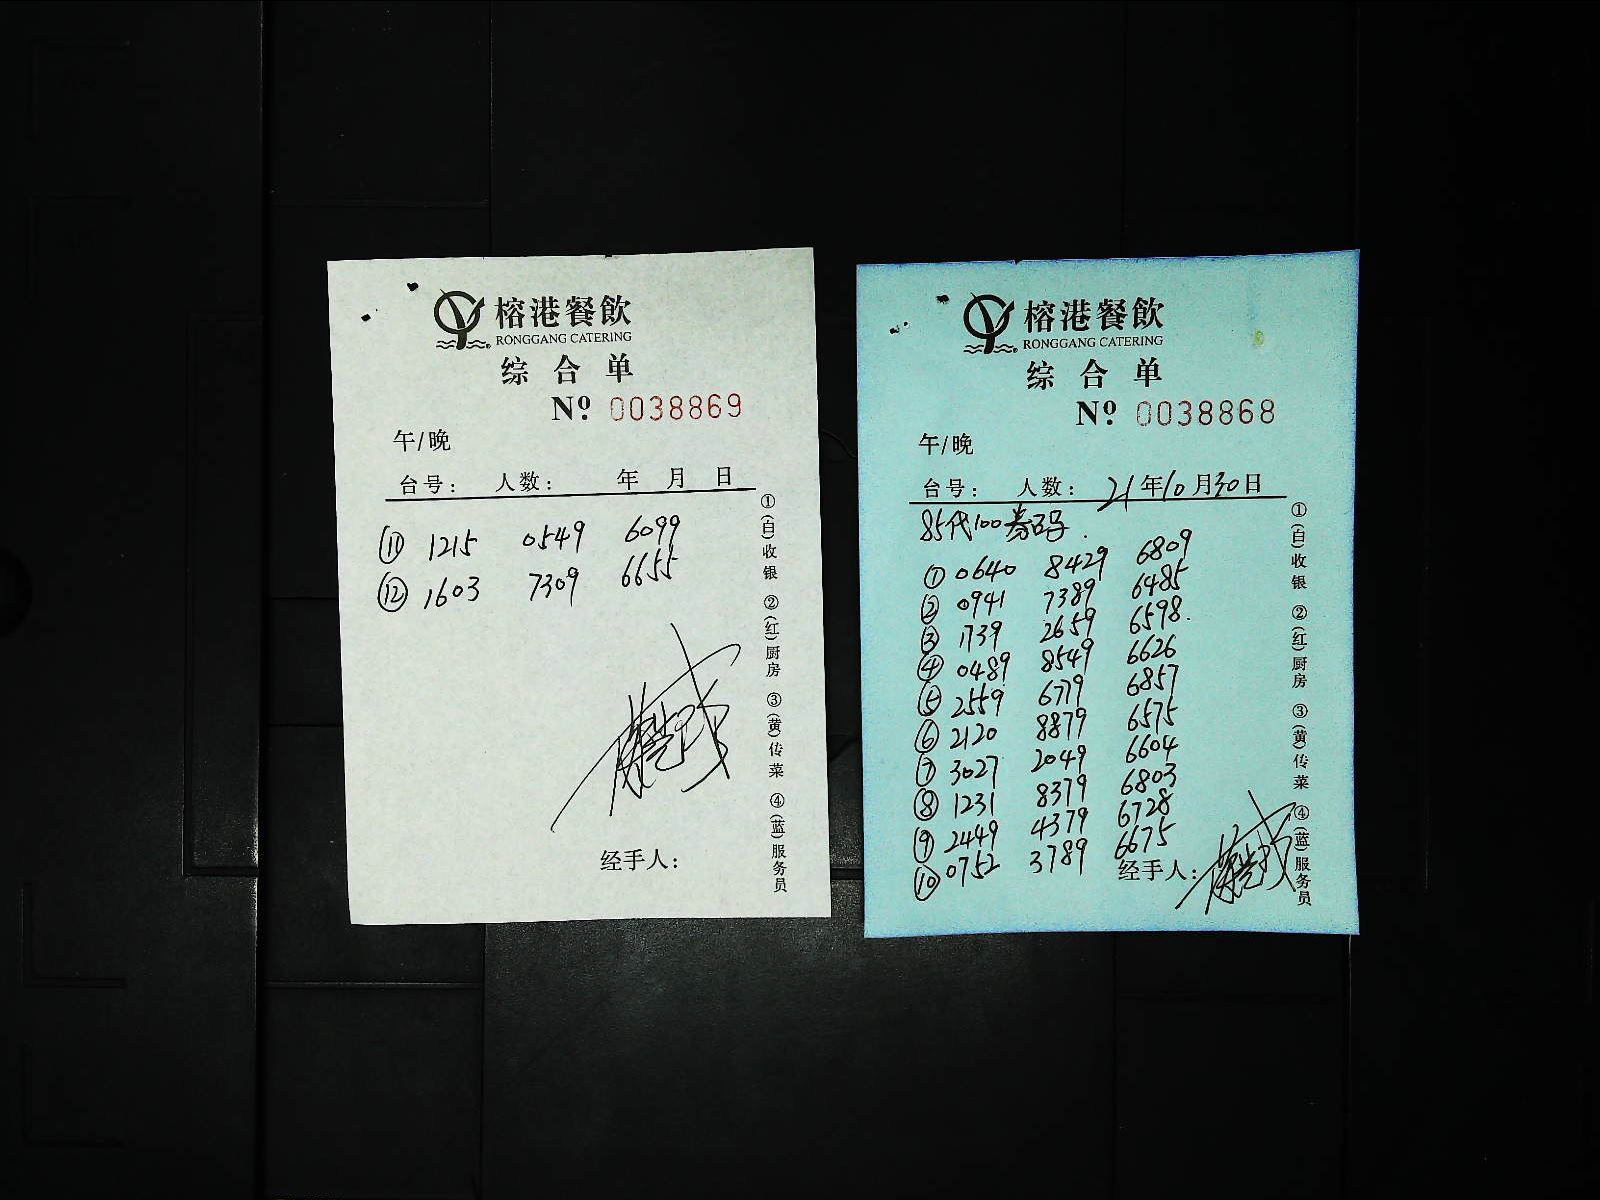 榕港餐飲
RONGGANG CATERING
综合单
Nº 0038869
午/晚
台号： 人数： 年 月 日
⑪ 1215 0549 6099
⑫ 1603 7309 6655
经手人：
①(自)收银 ②(红)厨房 ③(黄)传菜 ④(蓝)服务员
榕港餐飲
RONGGANG CATERING
综合单
Nº 0038868
午/晚
台号： 人数： 21年10月30日
85代100券码.
① 0640 8429 6809
② 0941 7389 6485
③ 1739 2659 6598.
④ 0489 8549 6626
⑤ 2559 6779 6857
⑥ 2120 8879 6575
⑦ 3027 2049 6604
⑧ 1231 8379 6803
⑨ 2449 4379 6728
⑩ 0752 3789 6675
经手人：
①(自)收银 ②(红)厨房 ③(黄)传菜 ④(蓝)服务员